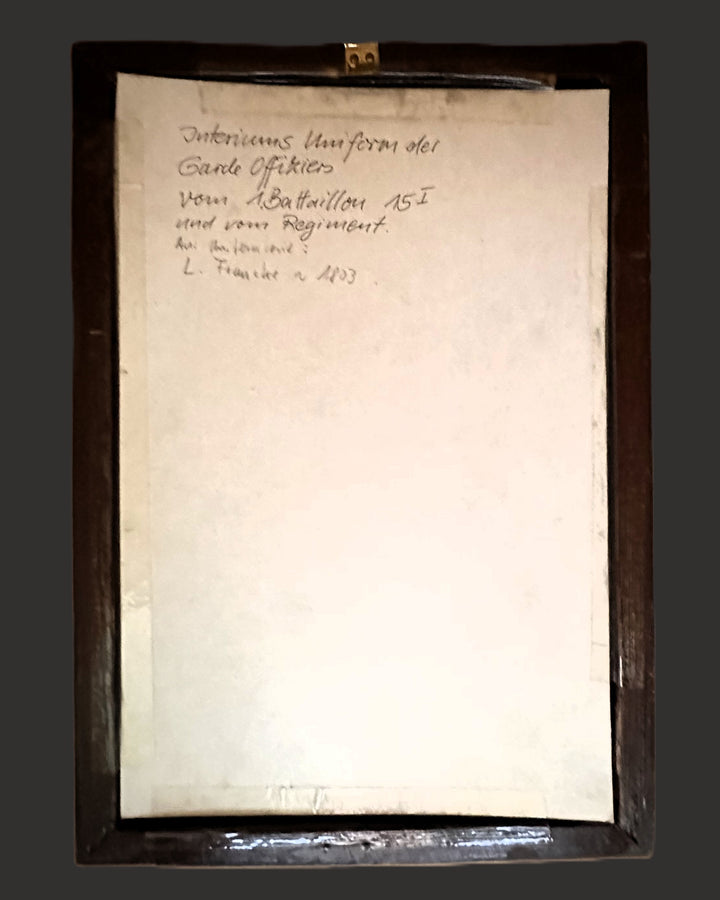 Interiums Uniform der
Garde Offiziers
vom 1.Battaillon 15 I
und vom Regiment.
L. 1803